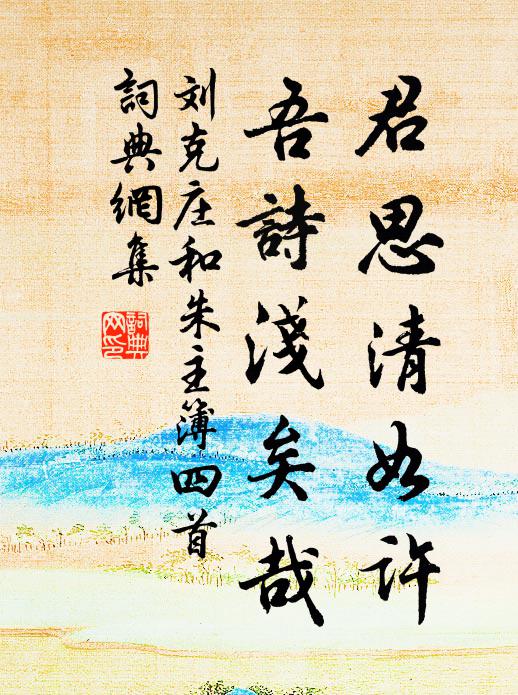 君思清如许
吾詩淺矣哉
刘克庄和朱主簿四首
詞典網集
詞典網印